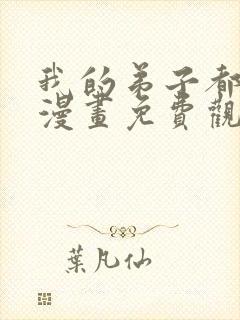 我的弟子都
漫畫免費觀
葉凡仙